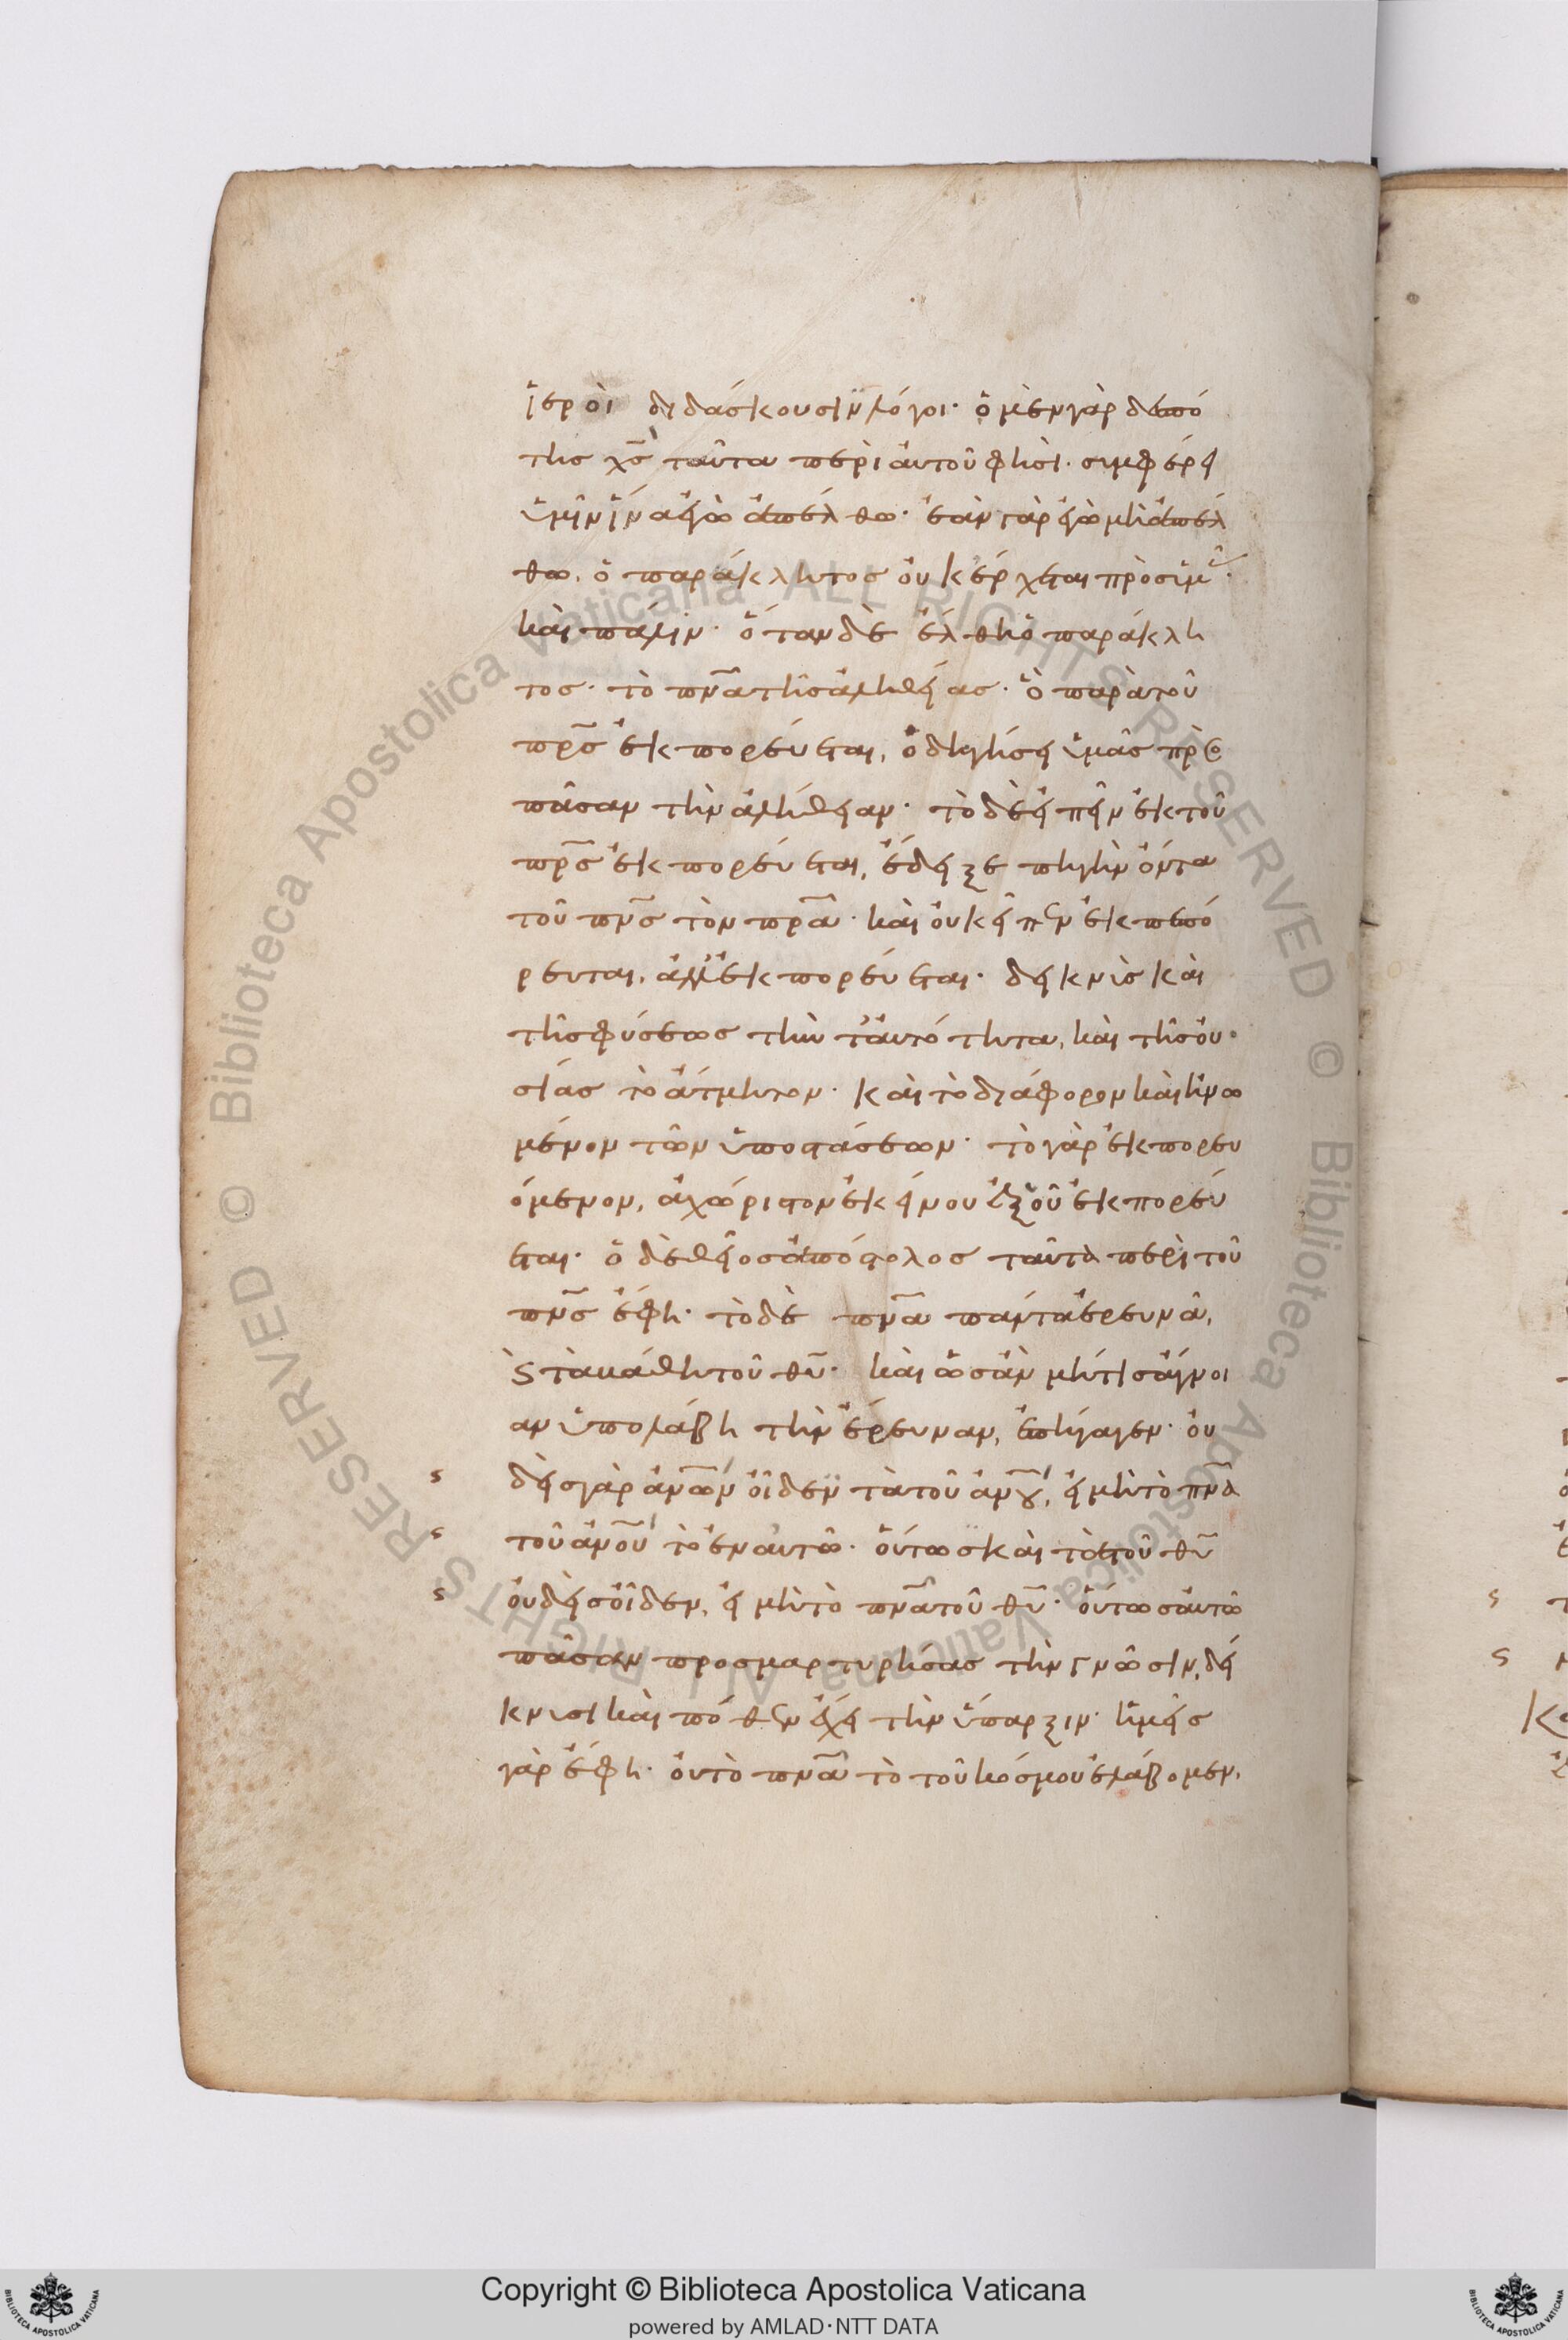 ἱεροὶ διδάσκουσιν λόγοι· ὁ μὲν γὰρ δεσπό
της χς ταῦτα περὶ αὐτοῦ φησι· συμφέρει
ὑμῖν ἵνα ἐγὼ ἀπέλθω· ἐὰν γὰρ ἐγὼ μὴ ἀπέλ
θω, ὁ παράκλητος οὐκ ἔρχεται πρὸς ὑμᾶς·
καὶ πάλιν· ὅταν δὲ ἔλθη ὁ παράκλη
τος· τὸ πνα τῆς ἀληθείας· ὃ παρὰ τοῦ
πρς ἐκπορεύεται, ὁδηγήσει ὑμᾶς πρὸς
πᾶσαν τὴν ἀλήθειαν· τὸ δὲ εἰπεῖν ἐκ τοῦ
πρς ἐκπορεύεται, ἔδειξε πηγὴν ὄντα
τοῦ πνς τὸν πρα· καὶ οὐκ εἶπεν ἐκπεπό
ρευται, ἀλλ' ἐκπορεύεται· δεικνὺς καὶ
τῆς φύσεως τὴν ταυτότητα, καὶ τῆς οὐ
σίας τὸ ἄτμητον· καὶ τὸ διάφορον καὶ ἡνω
μένον τῶν ὑποστάσεων· τὸ γὰρ ἐκπορευ
όμενον, ἀχώριστον ἐκείνου ἐξ οὗ ἐκπορεύ
εται· ὁ δὲ θεῖος ἀπόστολος ταῦτα περὶ τοῦ
πνς ἔφη· τὸ δὲ πνα πάντα ἐρευνᾶ,
καὶ τὰ βάθη τοῦ θυ· καὶ ὡς ἂν μήτις ἄγνοι
αν ὑπολάβη τὴν ἔρευναν, ἐπήγαγεν· οὐ
δεὶς γὰρ ἀνων οἶδεν τὰ τοῦ ἀνου, εἰ μὴ τὸ πνα
τοῦ ἀνου τὸ ἐν αὐτῶ· οὕτως καὶ τὰ τοῦ θυ
οὐδεὶς οἶδεν, εἰ μὴ τὸ πνα τοῦ θυ· οὕτως αὐτῶ
πᾶσαν προσμαρτυρήσας τὴν γνῶσιν, δεί
κνυσι καὶ πόθεν ἔχει τὴν ὕπαρξιν· ἡμεῖς
γὰρ ἔφη· οὐ τὸ πνα τὸ τοῦ κόσμου ἐλάβομεν,
Copyright © Biblioteca Apostolica Vaticana
powered by AMLAD·NTT DATA